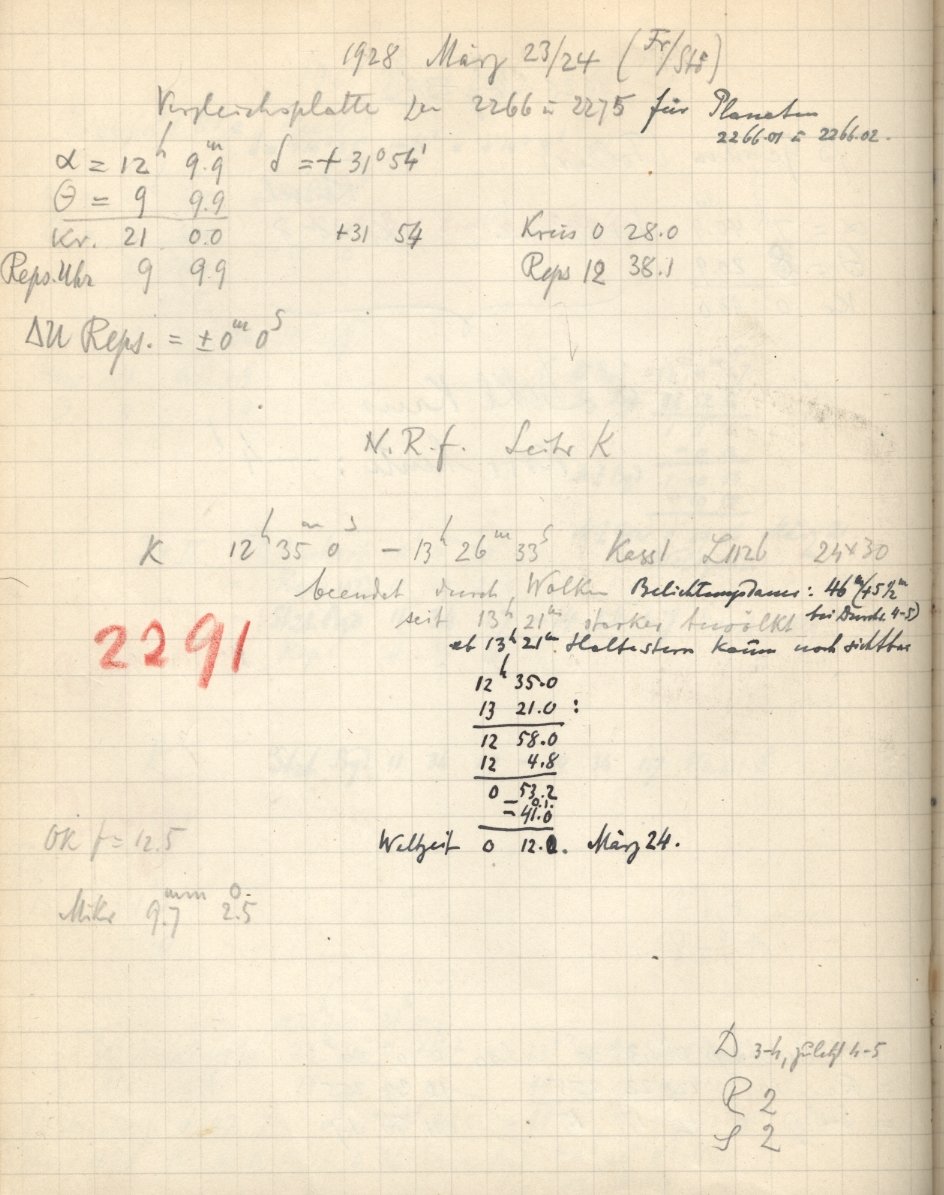 1928 März 23/24 (Fr/Stö)
Vergleichsplatte zu 2266 u 2275 für Planeten
2266.01 u 2266.02.
α = 12h 9.9m δ = + 31° 54'
θ = 9 9.9
Kr. 21 0.0 +31 54 Kreis 0 28.0
Reps.Uhr 9 9.9 Reps 12 38.1
ΔU Reps. = ± 0m 0s
N.R.f. Seite K
K 12h 35m 0s – 13h 26m 33s Kass1 24×30
beendet durch Wolken Belichtungsdauer: 46m (45½m
seit 13h 21m starker bewölkt bei Durchs 4-5)
ab 13h 21m Haltestern kaum noch sichtbar
2291
12h 35.0
13 21.0 :
12 58.0
12 4.8
0 53.2
– 0.1.
– 41.0
Weltzeit 0 12.1. März 24.
OK f = 12.5
Mikr 9.7mm 2.5
D 3-4, zuletzt 4-5
R 2
S 2